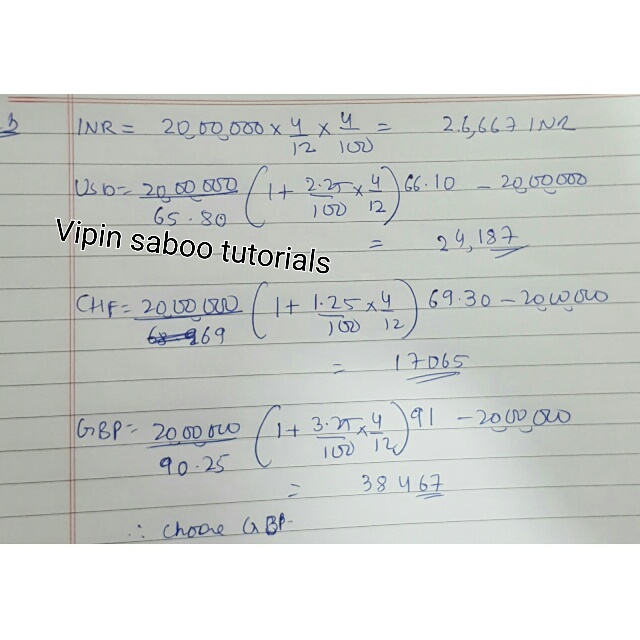 3 INR = 20,00,000 × 4/12 × 4/100 = 26,667 INR
USD = 20,00,000/65.80 (1 + 2.25/100 × 4/12) 66.10 - 20,00,000
= 24,187
Vipin saboo tutorials
CHF = 20,00,000/69 (1 + 1.25/100 × 4/12) 69.30 - 20,00,000
= 17065
GBP = 20,00,000/90.25 (1 + 3.25/100 × 4/12) 91 - 20,00,000
= 38467
∴ choose GBP